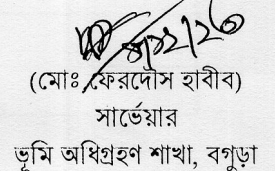 ৮/১২/২৩
(মোঃ ফেরদৌস হাবীব)
সার্ভেয়ার
ভূমি অধিগ্রহণ শাখা, বগুড়া